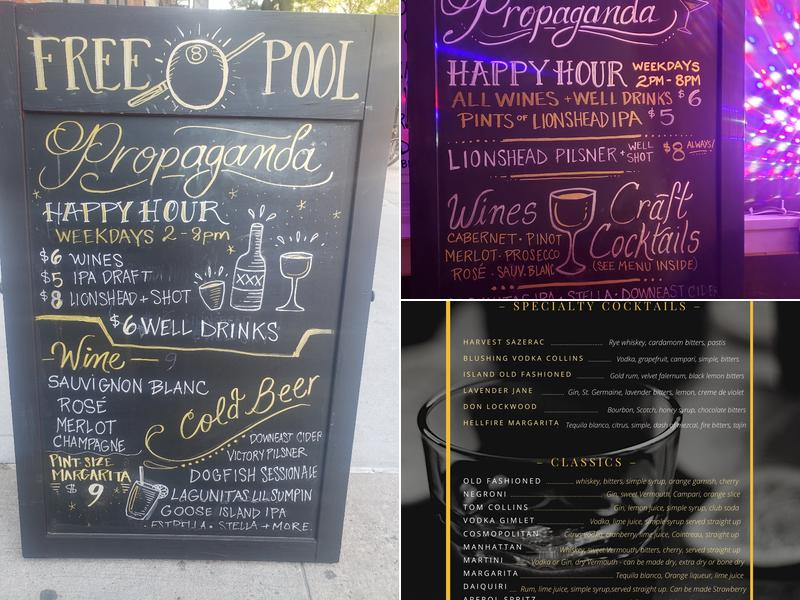 FREE 8 POOL
Propaganda
HAPPY HOUR
WEEKDAYS 2-8pm
$6 WINES
$5 IPA DRAFT
$8 LIONSHEAD + SHOT
XXX
$6 WELL DRINKS
Wine 9
SAUVIGNON BLANC
ROSÉ
MERLOT
CHAMPAGNE
PINT-SIZE
MARGARITA
$9
Cold Beer
DOWNEAST CIDER
VICTORY PILSNER
DOGFISH SESSIONALE
LAGUNITAS LIL SUMPIN
GOOSE ISLAND IPA
ESTRELLA • STELLA + MORE.
Propaganda
HAPPY HOUR WEEKDAYS
2PM-8PM
ALL WINES + WELL DRINKS $6
PINTS OF LIONSHEAD IPA $5
LIONSHEAD PILSNER + WELL SHOT $8 ALWAYS!
Wines
CABERNET • PINOT
MERLOT • PROSECCO
ROSÉ • SAUV. BLANC
Craft
Cocktails
(SEE MENU INSIDE)
STELLA • DOWNEAST CIDER
– SPECIALTY COCKTAILS –
HARVEST SAZERAC Rye whiskey, cardamom bitters, pastis
BLUSHING VODKA COLLINS Vodka, grapefruit, campari, simple, bitters
ISLAND OLD FASHIONED Gold rum, velvet falernum, black lemon bitters
LAVENDER JANE Gin, St. Germaine, lavender bitters, lemon, creme de violet
DON LOCKWOOD Bourbon, Scotch, honey syrup, chocolate bitters
HELLFIRE MARGARITA Tequila blanco, citrus, simple, dash of mezcal, fire bitters, tajin
– CLASSICS –
OLD FASHIONED whiskey, bitters, simple syrup, orange garnish, cherry
NEGRONI Gin, sweet Vermouth, Campari, orange slice
TOM COLLINS Gin, lemon juice, simple syrup, club soda
VODKA GIMLET Vodka, lime juice, simple syrup served straight up
COSMOPOLITAN Citrus vodka, cranberry, lime juice, Cointreau, straight up
MANHATTAN Whiskey, sweet Vermouth, bitters, cherry, served straight up
MARTINI Vodka or Gin, dry Vermouth - can be made dry, extra dry or bone dry
MARGARITA Tequila blanco, Orange liqueur, lime juice
DAIQUIRI Rum, lime juice, simple syrup,served straight up. Can be made Strawberry
APEROL SPRITZ